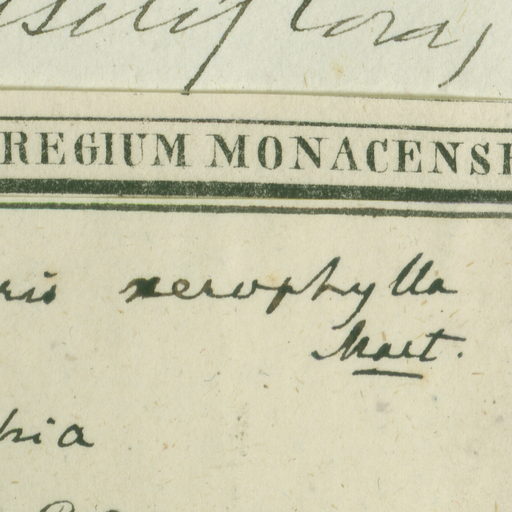 REGIUM MONACENSE
ris xerophylla
Mart.
hia